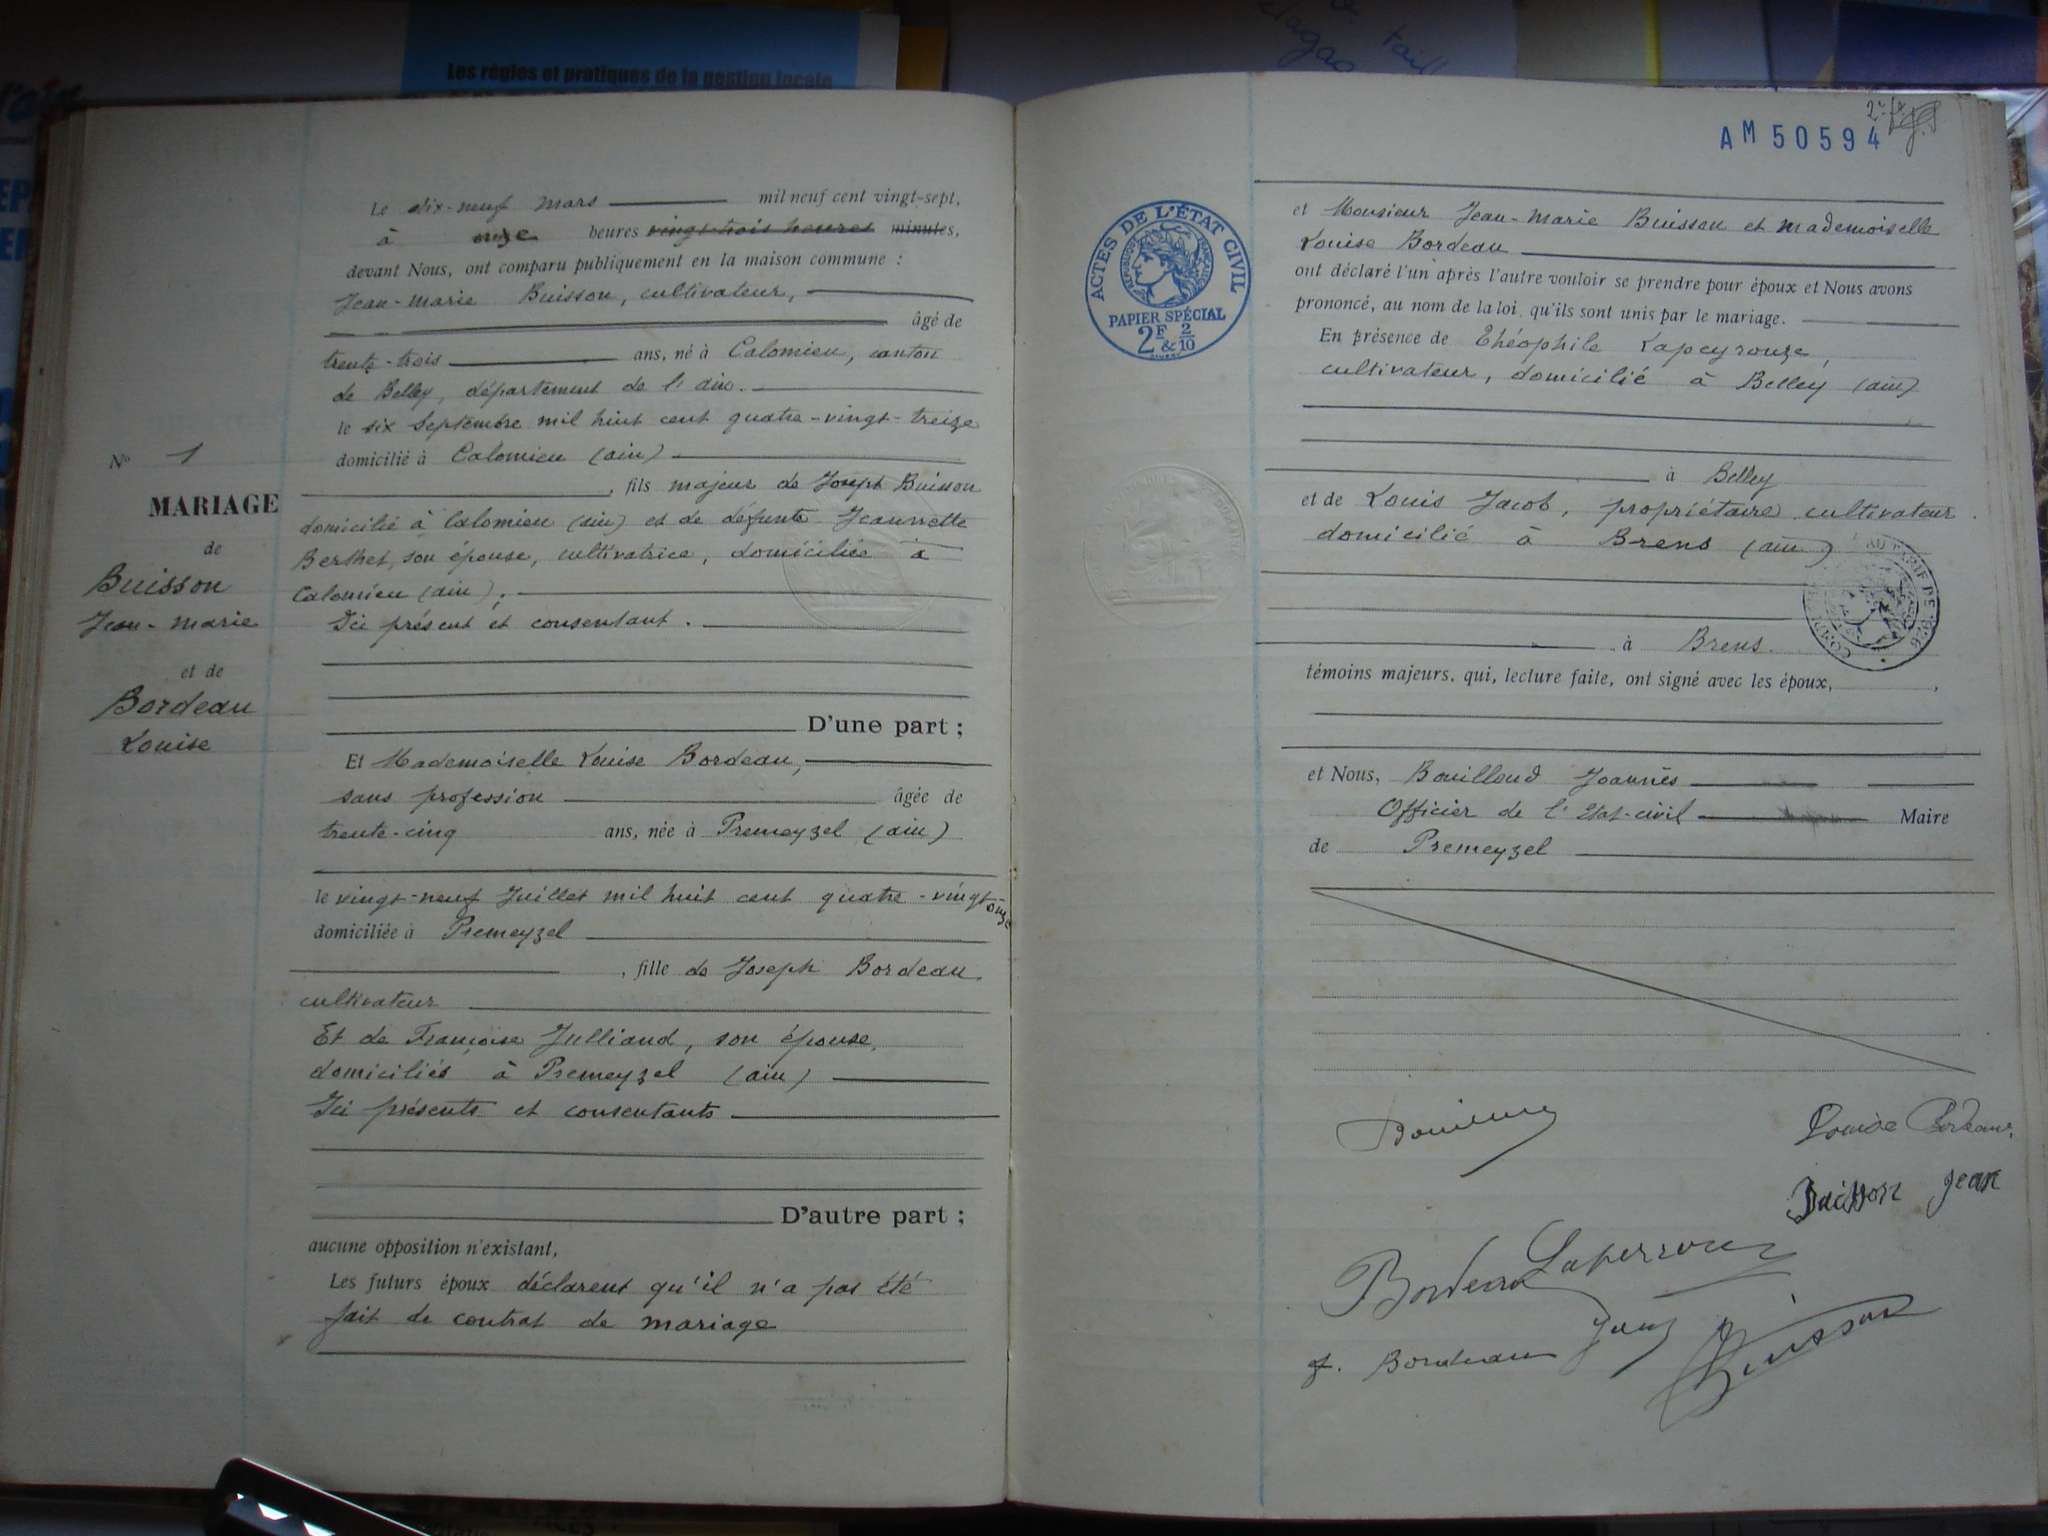 Les règles et pratiques de la gestion locale
Le dix-neuf mars mil neuf cent vingt-sept,
à onze heures vingt-trois heures minutes,
devant Nous, ont comparu publiquement en la maison commune :
Jean-Marie Buisson, cultivateur,
âgé de
trente-trois ans, né à Colomieu, canton
de Belley, département de l'ain.
le six Septembre mil huit cent quatre-vingt-treize
domicilié à Colomieu (ain)
, fils majeur de Joseph Buisson
domicilié à Colomieu (ain) et de défunte Jeannette
Berthet, son épouse, cultivatrice, domiciliée à
Colomieu (ain).
Ici présent et consentant.
D'une part ;
Et Mademoiselle Louise Bordeau,
sans profession âgée de
trente-cinq ans, née à Premeyzel (ain)
le vingt-neuf Juillet mil huit cent quatre-vingt onze
domiciliée à Premeyzel
, fille de Joseph Bordeau
cultivateur
Et de Françoise Julliand, son épouse,
domiciliés à Premeyzel (ain)
Ici présents et consentants
D'autre part ;
aucune opposition n'existant,
Les futurs époux déclarent qu'il n'a pas été
fait de contrat de mariage
N° 1
MARIAGE
de
Buisson
Jean-Marie
et de
Bordeau
Louise
AM 50594
ACTES DE L'ÉTAT CIVIL
RÉPUBLIQUE FRANÇAISE
PAPIER SPÉCIAL
2F & 2/10
et Monsieur Jean-Marie Buisson et Mademoiselle
Louise Bordeau
ont déclaré l'un après l'autre vouloir se prendre pour époux et Nous avons
prononcé, au nom de la loi, qu'ils sont unis par le mariage.
En présence de Théophile Lapeyrouze,
cultivateur, domicilié à Belley (ain)
à Belley
et de Louis Jacob, propriétaire cultivateur
domicilié à Brens (ain)
à Brens.
témoins majeurs, qui, lecture faite, ont signé avec les époux,
et Nous, Bouilloud Joannès
Officier de l'Etat-civil Maire
de Premeyzel
Louise Bordeau
Buisson Jean
Bordeau
F. Bordeau
Buisson